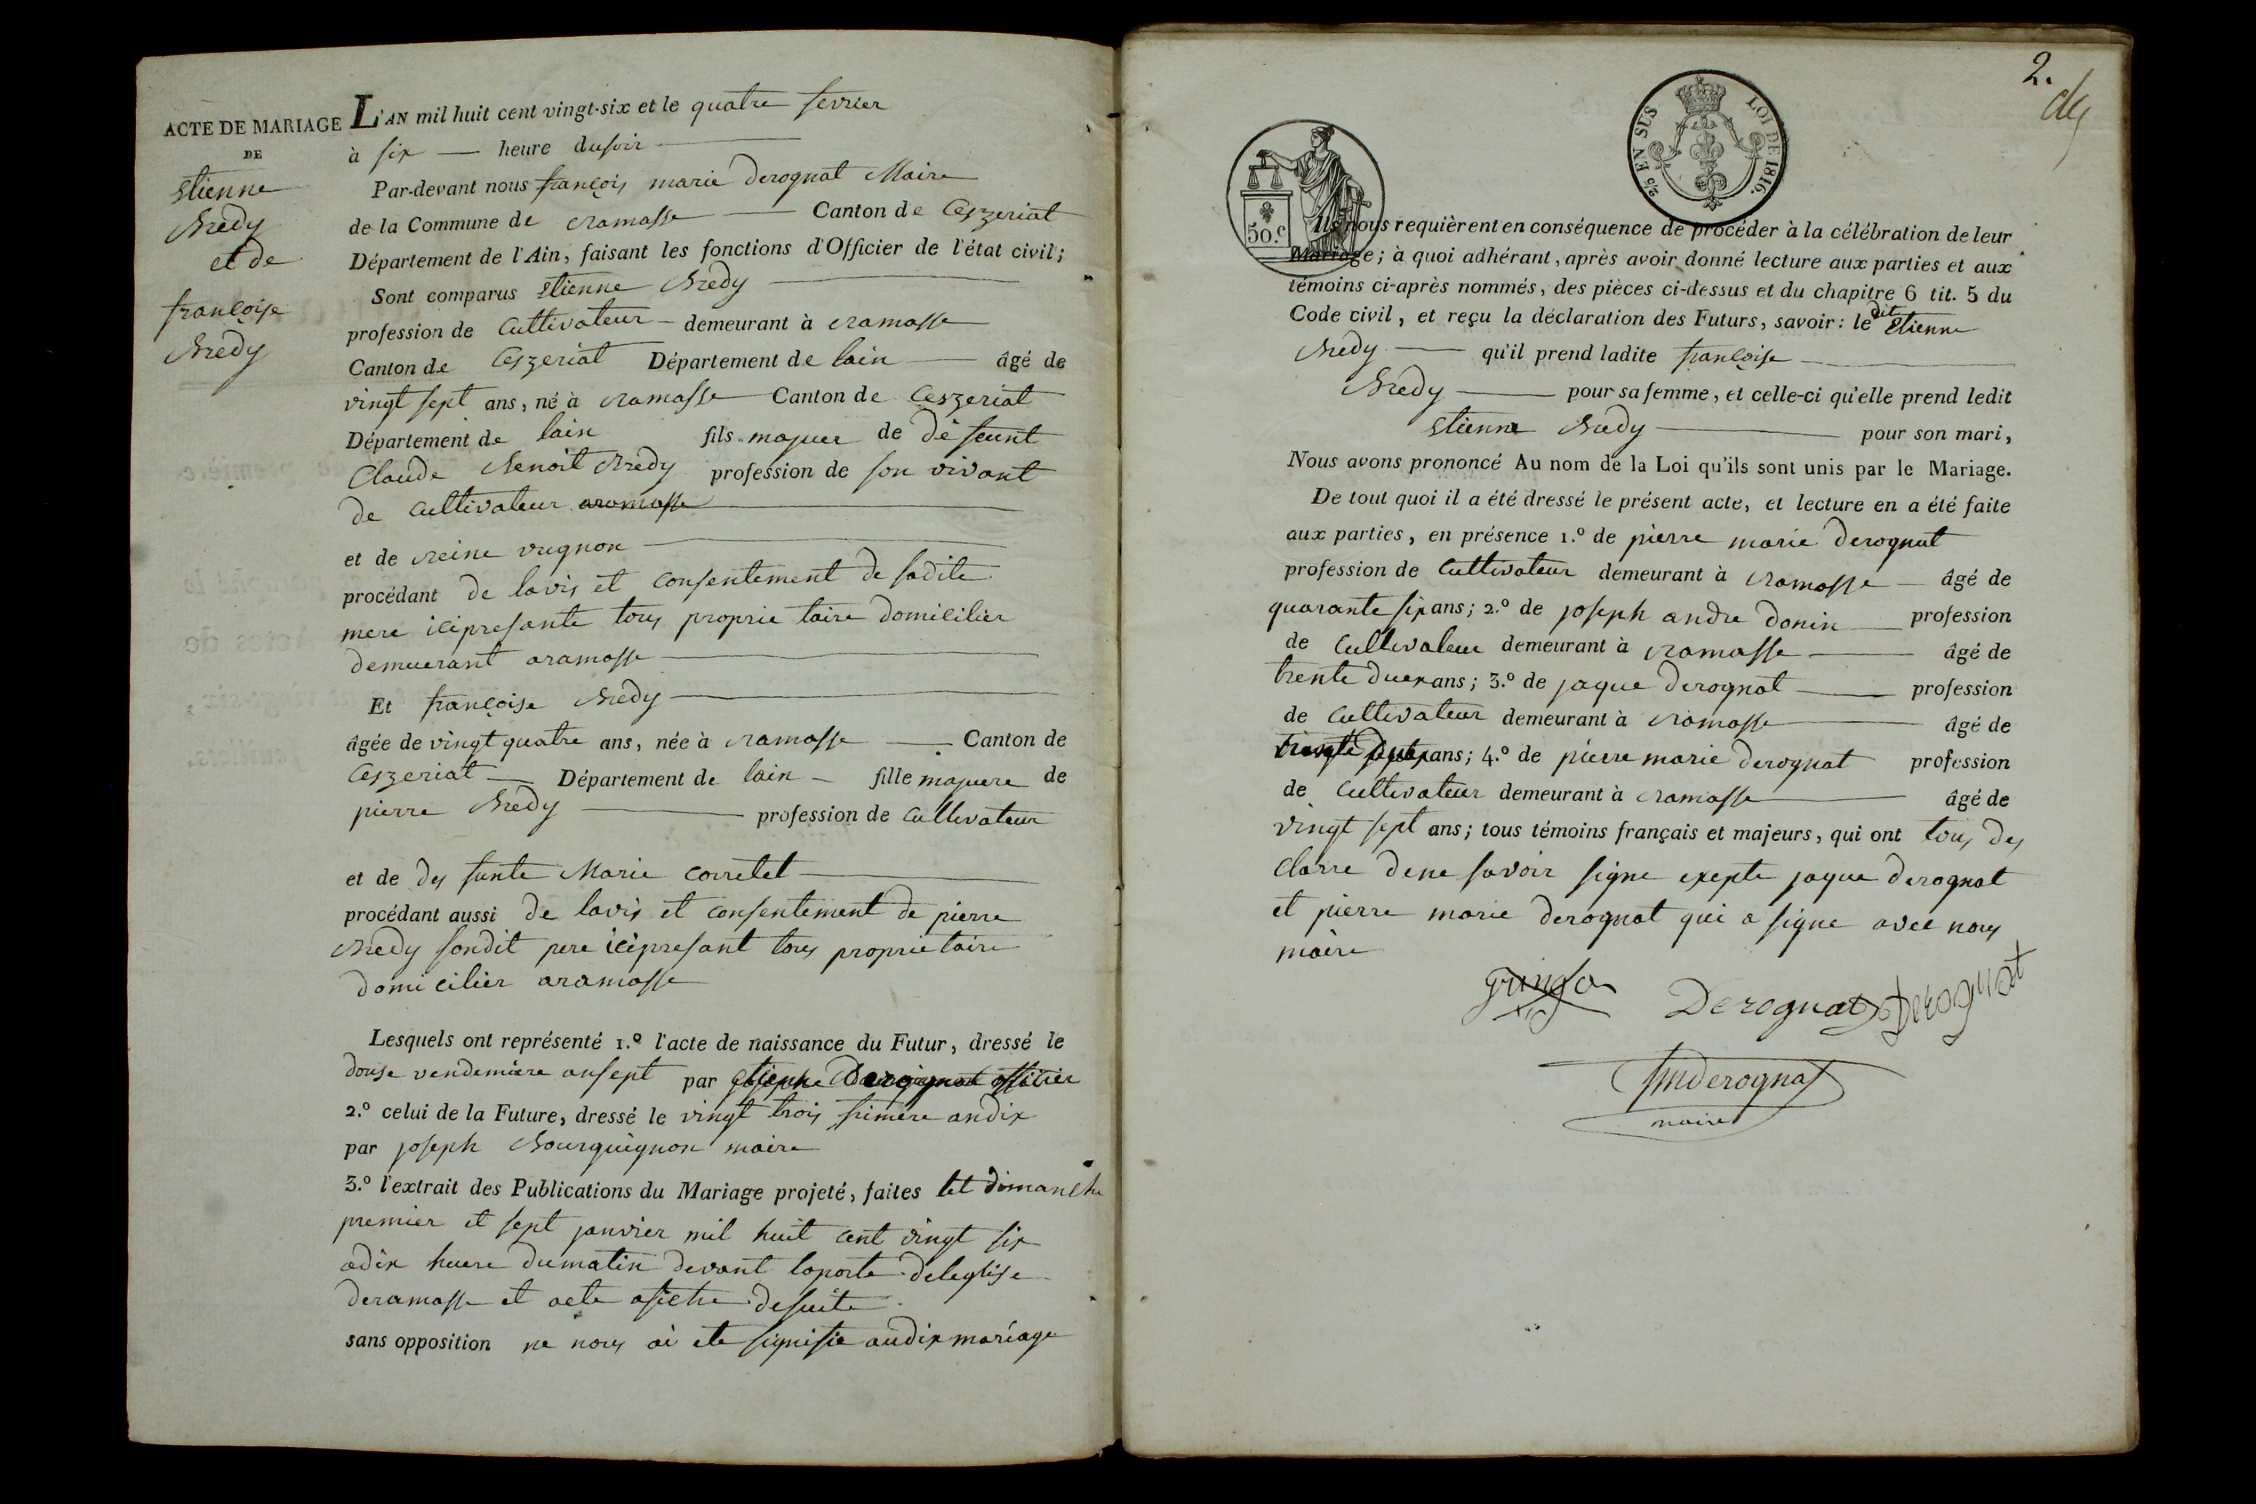 ACTE DE MARIAGE
DE
Etienne
Bredy
et de
françoise
Bredy
L'AN mil huit cent vingt-six et le quatre fevrier
à six heure du soir
Par-devant nous françois marie Derognat Maire
de la Commune de ramasse Canton de Ceyzeriat
Département de l'Ain, faisant les fonctions d'Officier de l'état civil;
Sont comparus Etienne Bredy
profession de Cultivateur demeurant à ramasse
Canton de Ceyzeriat Département de lain âgé de
vingt sept ans, né à ramasse Canton de Ceyzeriat
Département de lain fils majeur de défeunt
Claude Benoit Bredy profession de son vivant
de Cultivateur aramasse
et de reine vugnon
procédant de lavis et consentement de sadite
mere icipresante tous proprietaire domicilier
demeuerant aramasse
Et françoise Bredy
âgée de vingt quatre ans, née à ramasse Canton de
Ceyzeriat Département de lain fille majeure de
pierre Bredy profession de Cultivateur
et de des funte Marie corretet
procédant aussi de lavis et consentement de pierre
Bredy sondit pere icipresant tous proprietaire
domicilier aramasse
Lesquels ont représenté 1.º l'acte de naissance du Futur, dressé le
douse vendemiere ansept par Etienne Derognat officier
2.º celui de la Future, dressé le vingt trois frimere andix
par joseph Bourguignon maire
3.º l'extrait des Publications du Mariage projeté, faites let dimanche
premier et sept janvier mil huit cent vingt six
adix heure dumatin devant laporte deleglise
deramasse et acte afiche desuite
sans opposition ne nous ai ete signifie audix mariage
2.
50.c
2/5 EN SUS LOI DE 1816.
Ils nous requièrent en conséquence de procéder à la célébration de leur
Mariage; à quoi adhérant, après avoir donné lecture aux parties et aux
témoins ci-après nommés, des pièces ci-dessus et du chapitre 6 tit. 5 du
Code civil, et reçu la déclaration des Futurs, savoir: le dit Etienne
Bredy qu'il prend ladite françoise
Bredy pour sa femme, et celle-ci qu'elle prend ledit
Etienne Bredy pour son mari,
Nous avons prononcé Au nom de la Loi qu'ils sont unis par le Mariage.
De tout quoi il a été dressé le présent acte, et lecture en a été faite
aux parties, en présence 1.º de pierre marie Derognat
profession de Cultivateur demeurant à ramasse âgé de
quarante six ans; 2.º de joseph andre Donin profession
de Cultivateur demeurant à ramasse âgé de
trente duex ans; 3.º de jaque Derognat profession
de Cultivateur demeurant à ramasse âgé de
ans; 4.º de pierre marie Derognat profession
de Cultivateur demeurant à ramasse âgé de
vingt sept ans; tous témoins français et majeurs, qui ont tous des
clarre dene savoir signe exepte jaque Derognat
et pierre marie Derognat qui a signe avec nous
maire
Derognat Derognat
fmderognat
maire